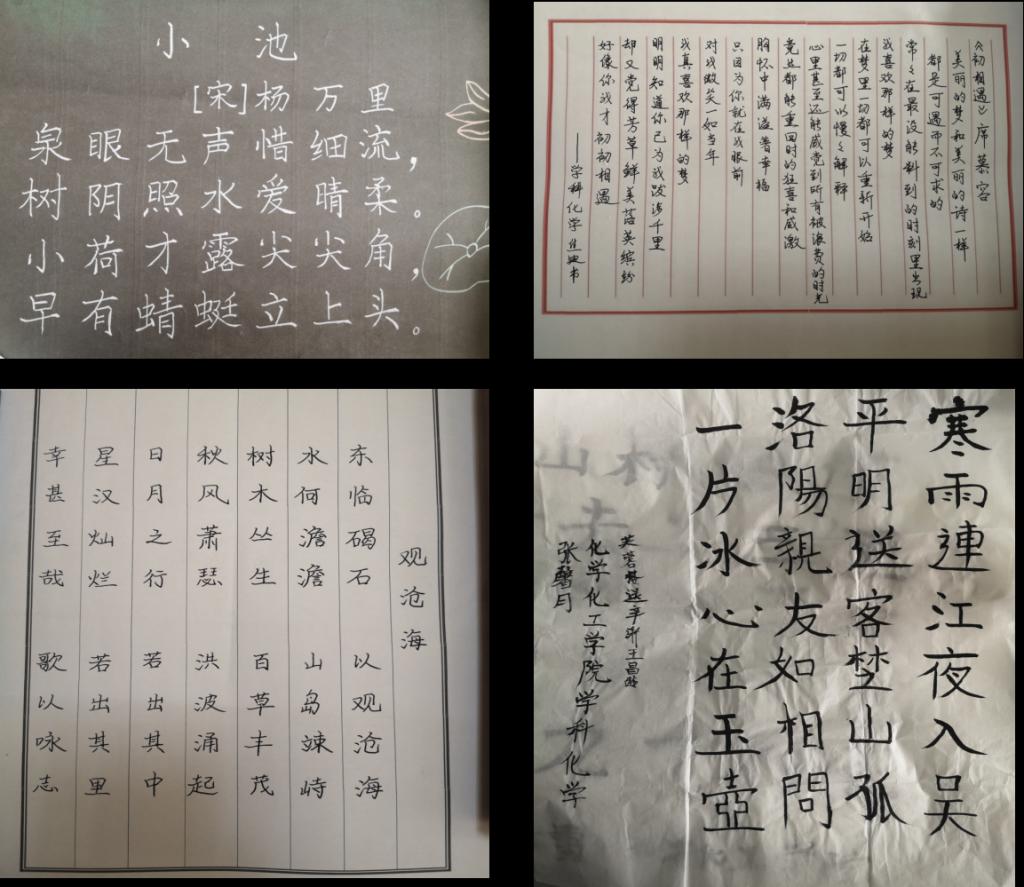 小 池
[宋]杨万里
泉眼无声惜细流，
树阴照水爱晴柔。
小荷才露尖尖角，
早有蜻蜓立上头。
《初相遇》席慕容
美丽的梦和美丽的诗一样
都是可遇而不可求的
常々在最没能料到的时刻里出现
我喜欢那样的梦
在梦里一切都可以重新开始
一切都可以慢々解释
心里甚至还能感觉到所有被浪费的时光
竟然都能重回时的狂喜和感激
胸怀中满溢着幸福
只因为你就在我眼前
对我微笑一如当年
我真喜欢那样的梦
明明知道你已为我跋涉千里
却又觉得芳草鲜美落英缤纷
好像你我才初初相遇
——学科化学
观沧海
东临碣石 以观沧海
水何澹澹 山岛竦峙
树木丛生 百草丰茂
秋风萧瑟 洪波涌起
日月之行 若出其中
星汉灿烂 若出其里
幸甚至哉 歌以咏志
寒雨連江夜入吴
平明送客楚山孤
洛陽親友如相問
一片冰心在玉壺
芙蓉楼送辛渐王昌龄
化学化工学院学科化学
张馨月